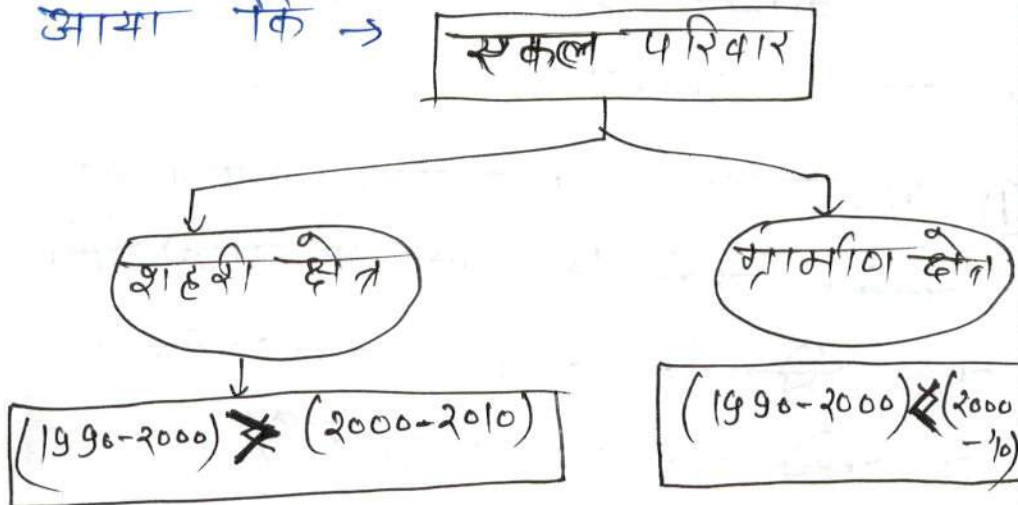 आया कि →
एकल परिवार
शहरी क्षेत्र
ग्रामीण क्षेत्र
(1990-2000) > (2000-2010)
(1990-2000) < (2000
-'10)